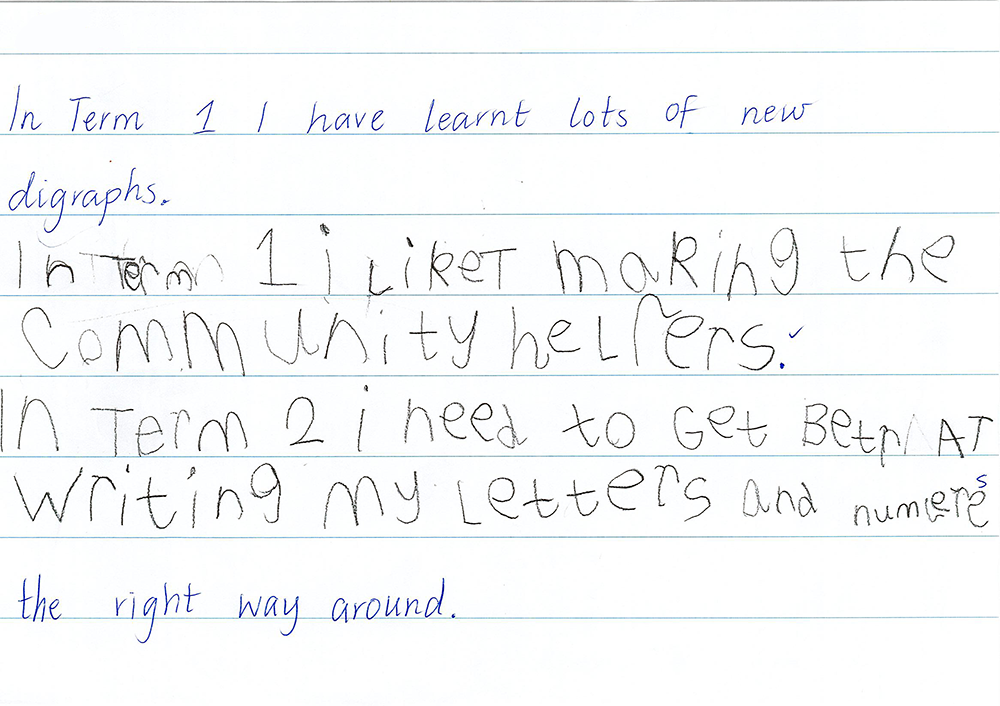 In Term 1 I have learnt lots of new
digraphs.
In Term 1 i LikeT making the
Community heLpers.
In Term 2 i need to Get Betr AT
Writing my Letters and numers
the right way around.